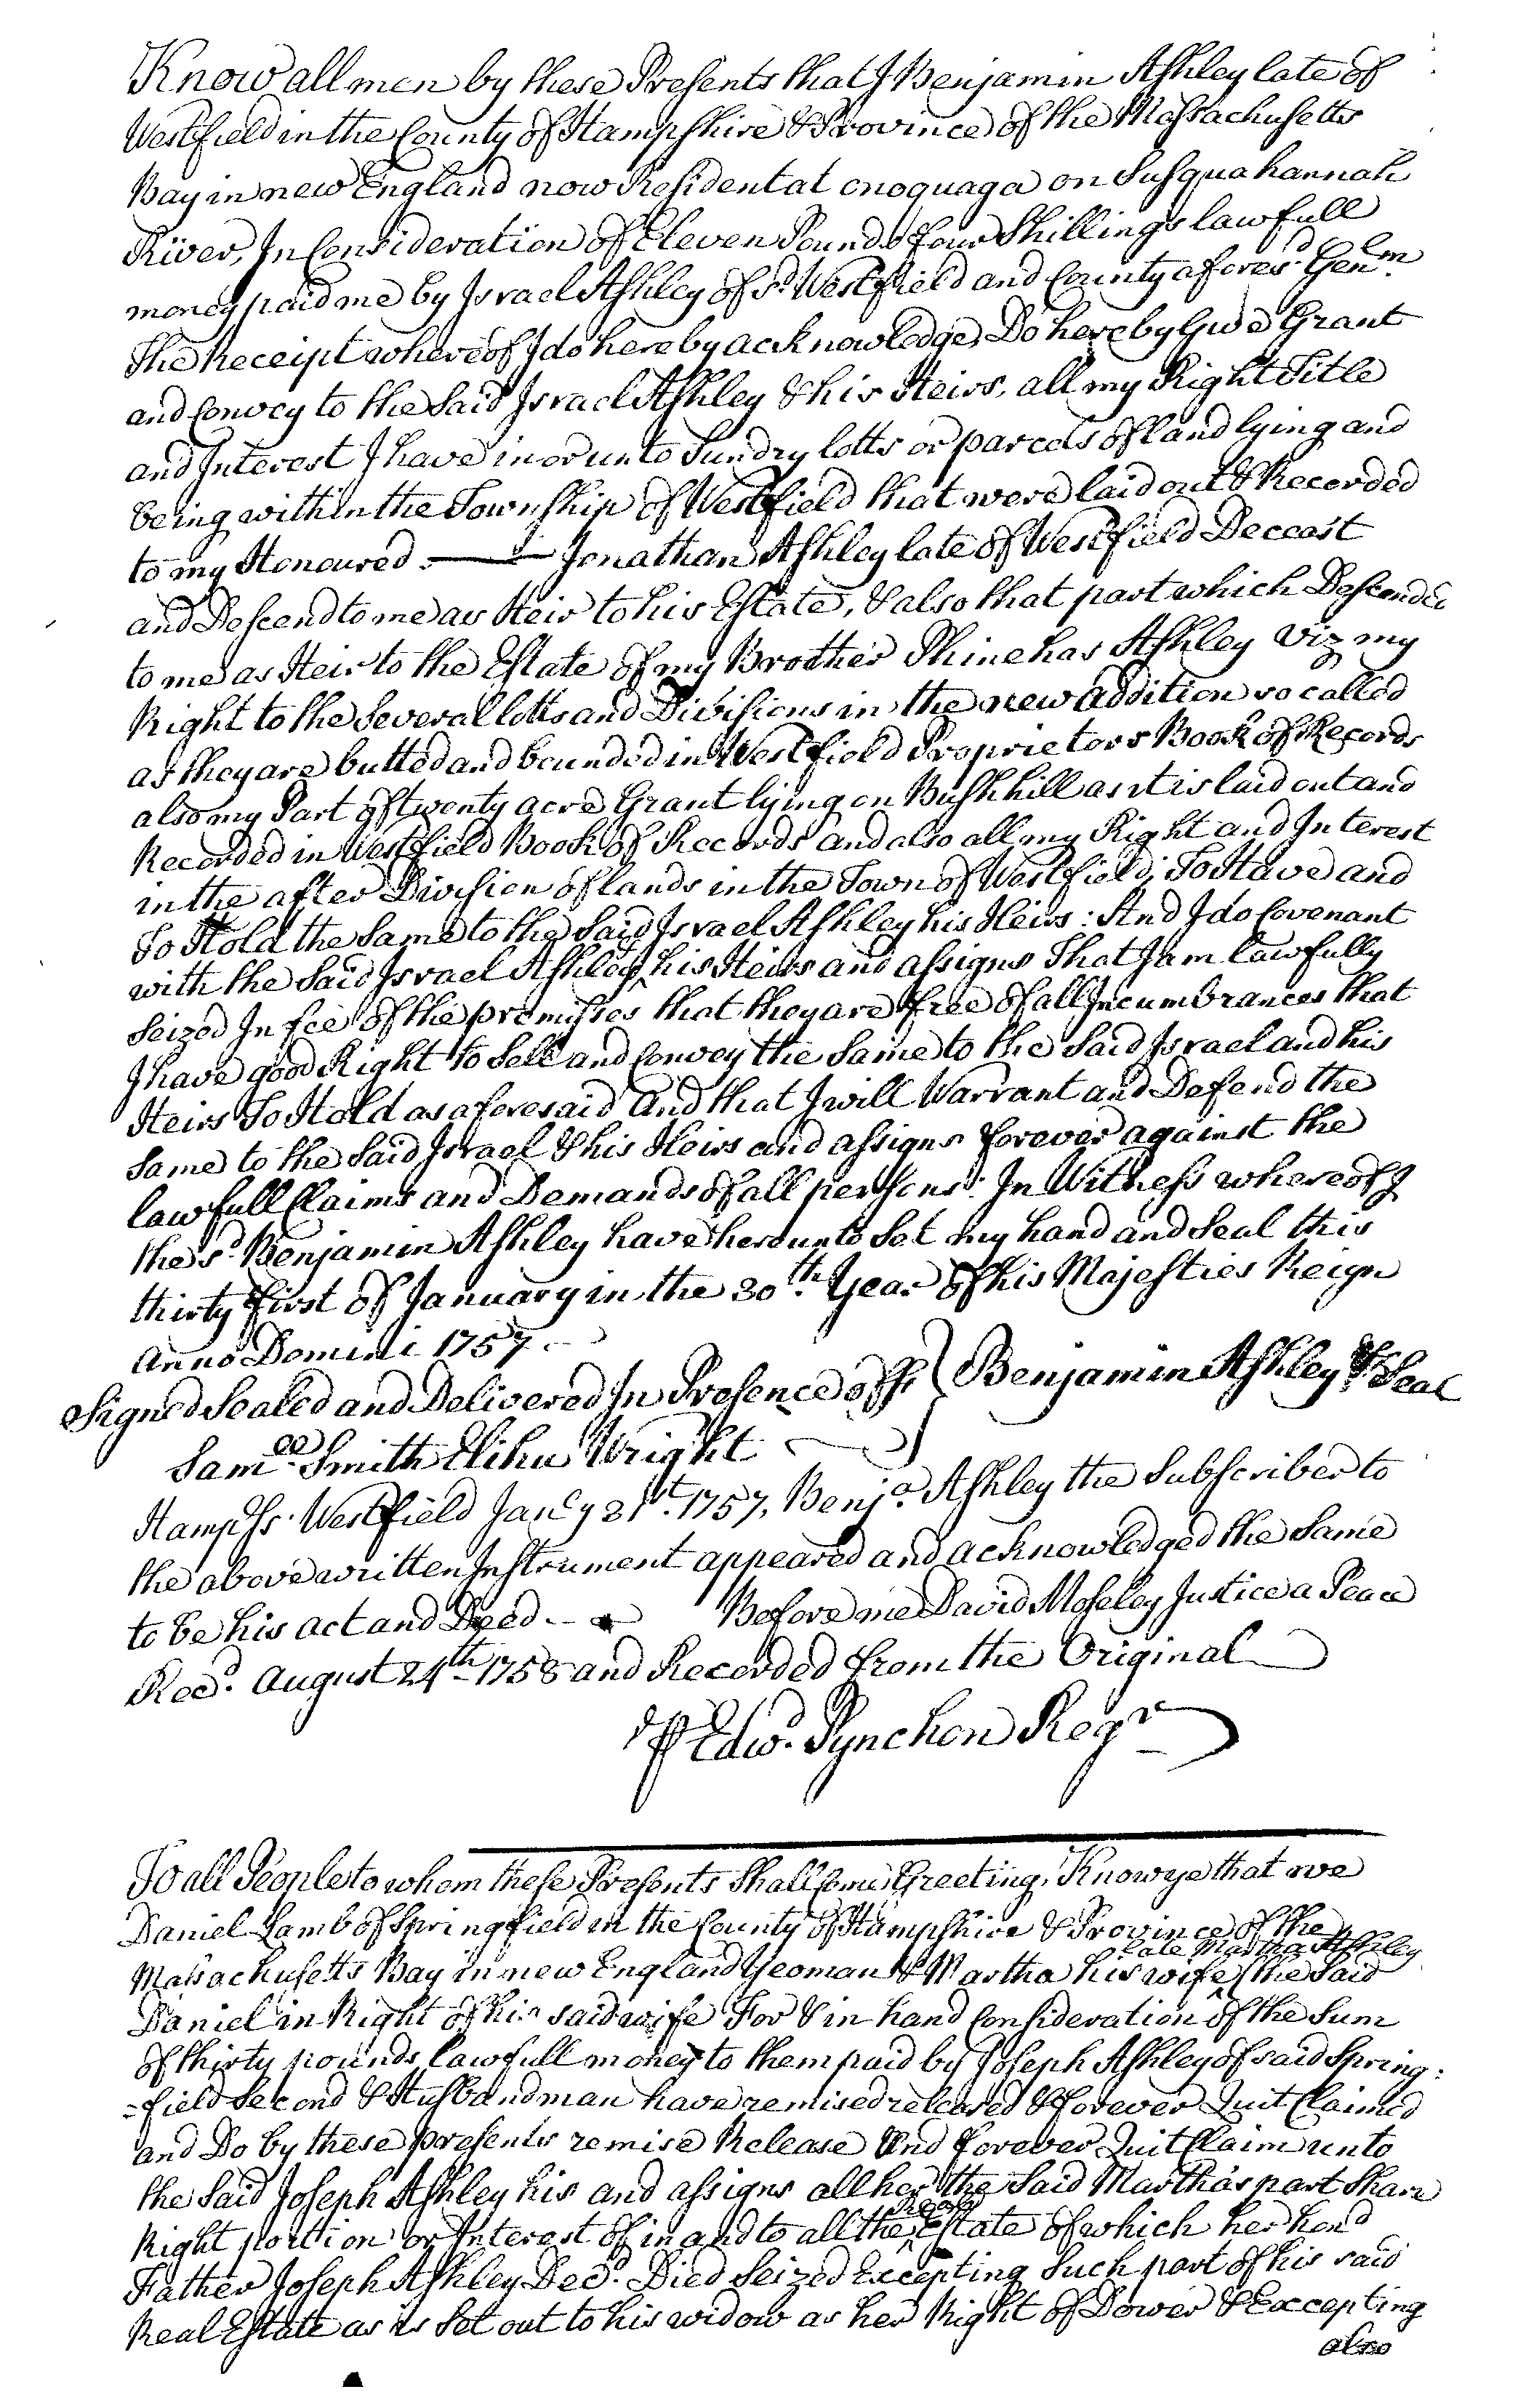 Know all men by these Presents that I Benjamin Ashley late of
Westfield in the County of Hampshire & Province of the Massachusetts
Bay in new England now Resident at onoquaga on Susquahannah
River, In Consideration of Eleven Pounds four Shillings lawfull
money paid me by Israel Ashley of sd. Westfield and County aforesd. Genlm.
The Receipt whereof I do hereby acknowledge, Do hereby Give Grant
and Convey to the Said Israel Ashley & his Heirs, all my Right Title
and Interest I have in or unto Sundry lotts or parcels of land lying and
being within the Township of Westfield that were laid out & Recorded
to my Honoured. — Jonathan Ashley late of Westfield Deceast
and Descend to me as Heir to his Estate, & also that part which Descended
to me as Heir to the Estate of my Brother Phinehas Ashley Viz my
Right to the Several lotts and Divisions in the new addition so called
as they are butted and bounded in Westfield Proprietors Book of Records
also my Part of twenty acre Grant lying on Bushhill as it is laid out and
Recorded in Westfield Book of Records and also all my Right and Interest
in the after Division of lands in the Town of Westfield; To Have and
To Hold the Same to the Said Israel Ashley his Heirs: And I do Covenant
with the Said Israel Ashley, his Heirs and assigns That I am lawfully
Seized In fee of the premisses that they are free of all Incumbrances that
I have good Right to Sell and Convey the Same to the Said Israel and his
Heirs To Hold as aforesaid And that I will Warrant and Defend the
Same to the Said Israel & his Heirs and assigns forever against the
lawfull Claims and Demands of all persons: In Witness whereof I
the sd. Benjamin Ashley have hereunto Set my hand and Seal this
thirty first of January in the 30th. Year of his Majesties Reign
Anno Domini 1757.
Signed Sealed and Delivered In Presence of } Benjamin Ashley & Seal
Samll. Smith Elihu Wright
Hampss. Westfield Jany 31st. 1757, Benja. Ashley the Subscriber to
the above written Instrument appeared and acknowledged the Same
to be his act and Deed. — Before me David Moseley Justice a Peace
Recd. August 24th 1758 and Recorded from the Original
P Edwd. Pynchon Regr
To all People to whom these Presents Shall Come Greeting, Know ye that we
Daniel Lamb of Springfield in the County of Hampshire & Province of the
late Martha Ashley
Massachusetts Bay in new England Yeoman & Martha his wife (the Said
Daniel in Right of his said wife For & in hand Consideration of the Sum
of thirty pounds lawfull money to them paid by Joseph Ashley of said Spring:
=field Second & Husbandman have remised released & forever Quit Claimed
and Do by these presents remise Release And forever Quit Claim unto
the Said Joseph Ashley his and assigns all her the Said Martha's part Share
Real
Right portion or Interest of in and to all the Estate of which her hond
Father Joseph Ashley Decd. Died Seized Excepting Such part of his said
Real Estate as is Set out to his widow as her Right of Dower & Excepting
also